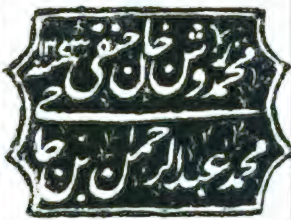 محمد روشن خان حنفی سنه ۱۲۶۳
محمد عبدالرحمن بن حاجی